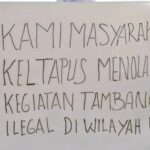 KAMI MASYARAK
KEL TAPUS MENOLA
KEGIATAN TAMBANG
ILEGAL DI WILAYAH